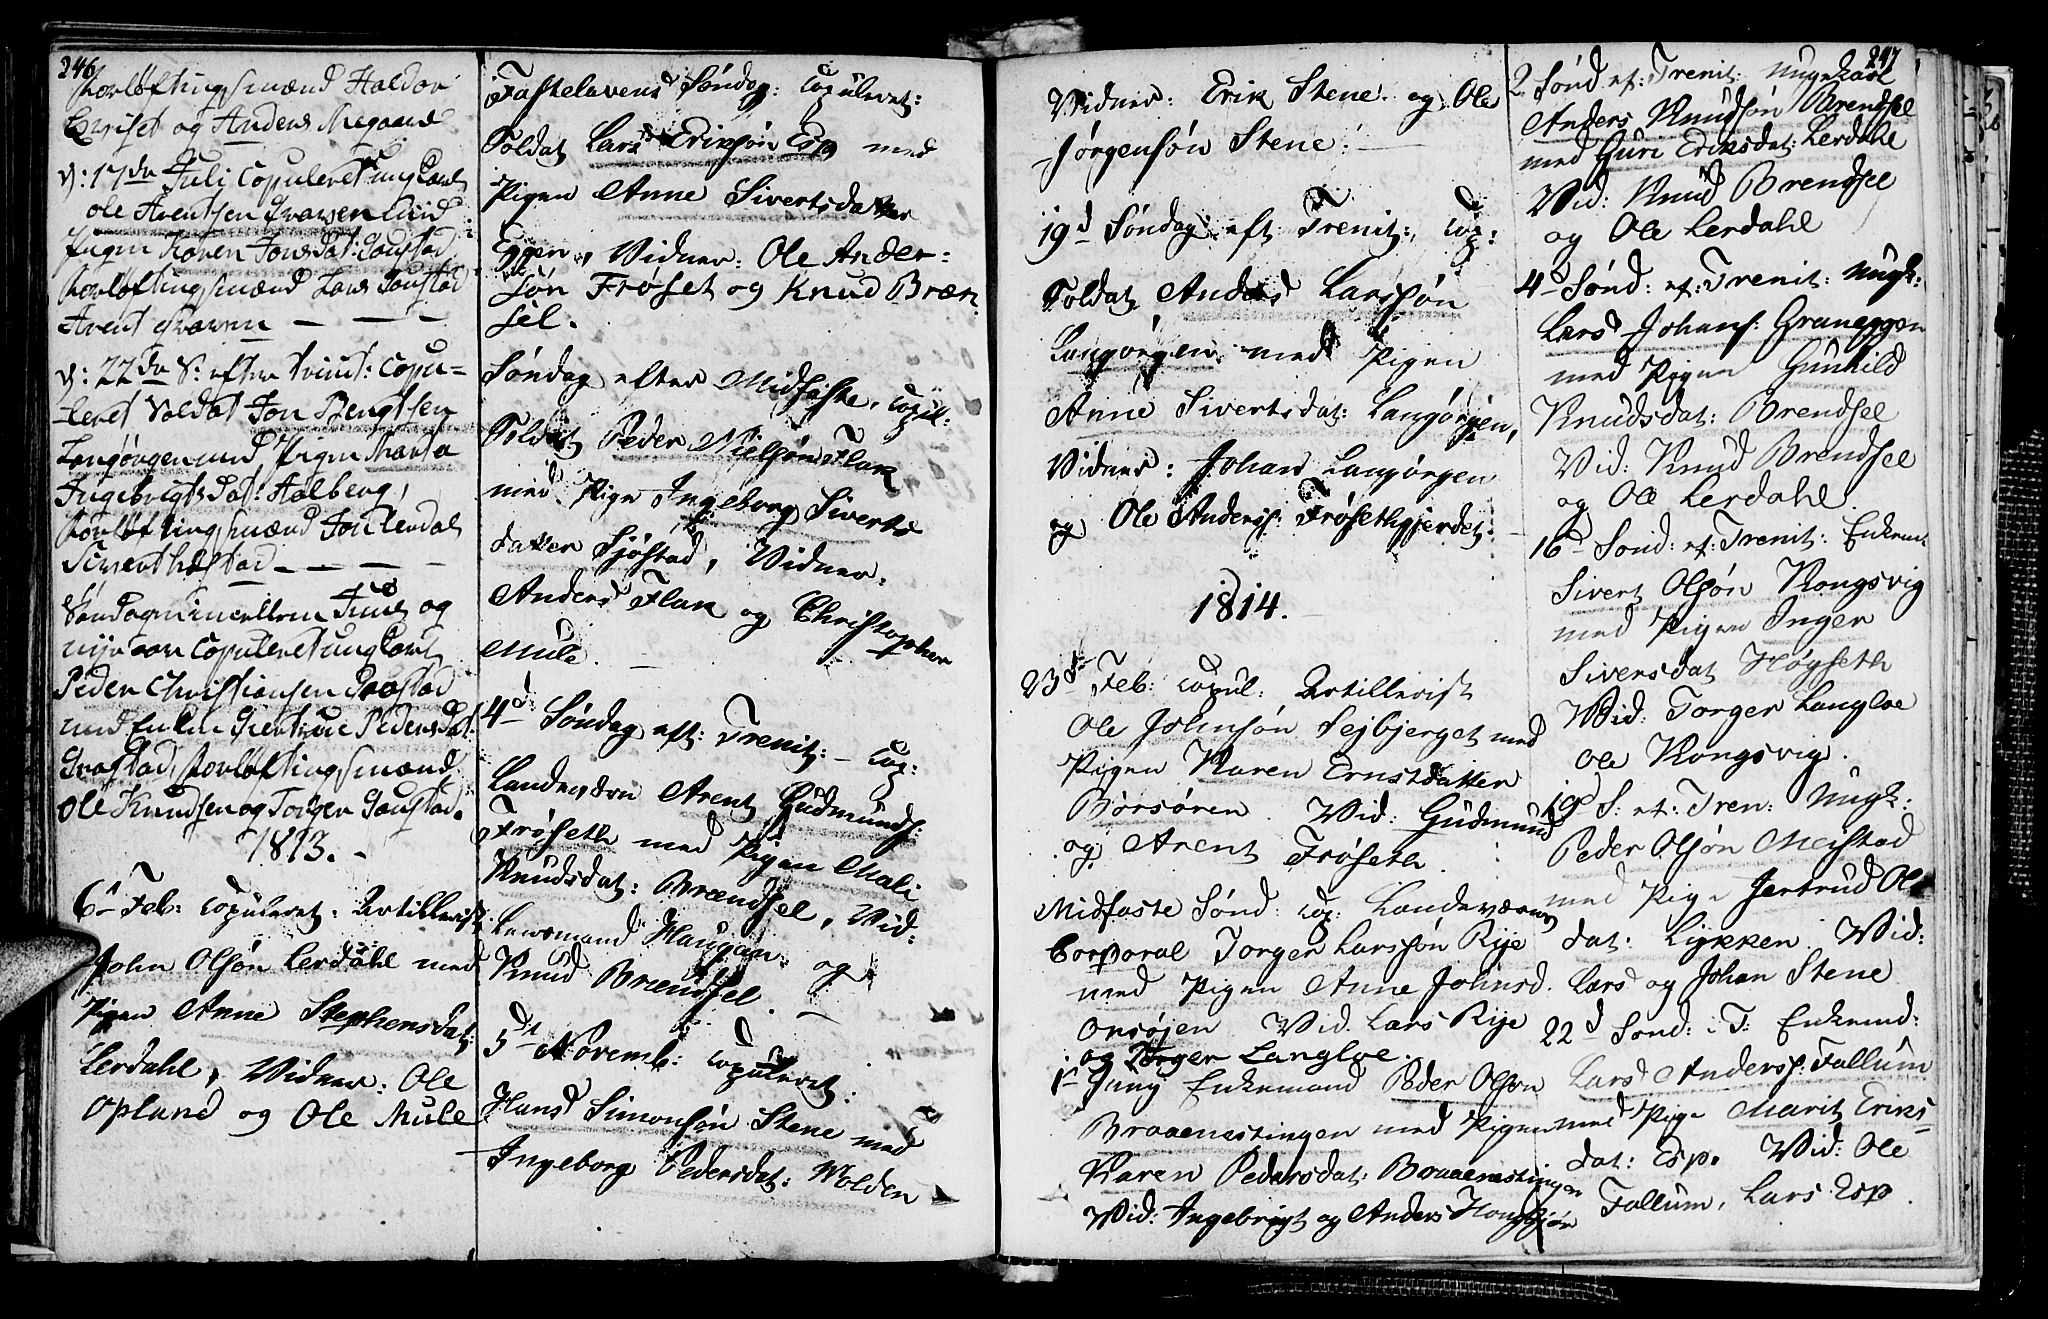 246
Forløftingsmænd Haldor
og Anders Megaard
d: 17de Juli Copuleret ungkarl
Ole Arentsen Skaren med
Pigen Karen Jonsdat: Gaustad
Forløftingsmænd Lars Gaustad
Arent Skaren — — —
d: 22de S: efter Trinit: Copu-
leret Soldat Jon Bengtsen
Langørgen med Pigen Marta
Ingebrigtsdat: Aalberg,
Forløftingsmænd Jon Lerdal
Sivert Hæstad — — — —
Søndagen imellem Juul og
nyeaar Copuleret ungkarl
Peder Christiansen Grostad
med Enken Giertrue Pedersdat:
Grostad, Forløftingsmænd
Ole Knudsen og Torger Gaustad.
1813. -
6t Feb: copuleret: Artillerist
John Olsøn Lerdahl med
Pigen Anne Stephensdat:
Lerdahl, Vidner: Ole
Opland og Ole Mule
Fastelavens Søndag: copuleret:
Soldat Lars Eriksøn Esp med
Pigen Anne Sivertsdatter
Eggen, Vidner: Ole Ander-
søn Frøset og Knud Bræn-
sel.
Søndag efter Midfaste, copul:
Soldat Peder Nielsøn Flak
med Pige Ingeborg Siverts
datter Sjøstad, Vidner:
Anders Flak og Christopher
Mule. —
4d Søndag eft: Trenit: - Cop:
Landværn Arent Gudmunds:
Frøseth med Pigen Mali
Knudsdat: Brændsel, Vid:
Lensmand Haugan og
Knud Brændsel. —
5t Novemb: copuleret:
Hans Simonsøn Stene med
Ingeborg Pedersdat: Wolden
Vidner: Erik Stene og Ole
Jørgensøn Stene: —
19d Søndag eft Trenit:, Cop:
Soldat Anders Larssøn
Langørgen med Pigen
Anne Sivertsdat: Langørgen,
Vidner: Johan Langørgen
og Ole Anders: Frøsethgjerdet. —
1814. -
23de Feb: copul: Artillerist
Ole Johnsøn Sejbjerget med
Pigen Karen Ernstdatter
Børsøren. Vid: Gudmund
og Arent Frøseth.
Midfaste Sønd: cop: Landeværns
Corporal Torger Larssøn Rije
med Pigen Anne Johnsd.
Onsøjen Vid. Lars Rije
og Torger Langloe.
1t Juny Enkemand Peder Olsøn
Braaenestingen med Pigen
Karen Pedersdat: Braaenestingen
Vid: Ingebrigt og Anders
247
2 Sønd ef: Trenit: Ungekarl
Anders Knudsøn Brendsel
med Guri Eriksdat: Lerdahl
Vid: Knud Brendsel
og Ole Lerdahl
4d Sønd: ef: Trenit: Ungk:
Lars Johans: Graneggen
med Pigen Gunhild
Knudsdat: Brendsel
Vid: Knud Brendsel
og Ole Lerdahl.
16d Sønd: ef: Trenit: Enkem
Sivert Olsøn Kongsvig
med Pigen Inger
Siversdat Høgseth
Vid: Torger Langloe
Ole Kongsvig.
19d S: ef: Tren: Ungk:
Peder Olsøn Meistad
med Pige Jertrud Ols
dat: Lykken. Vid:
Lars og Johan Stene
22d Sønd: i T: Enkemd:
Lars Anders: Fallum
med Pige Marit Eriks-
dat: Esp. Vid: Ole
Fallum, Lars Esp.